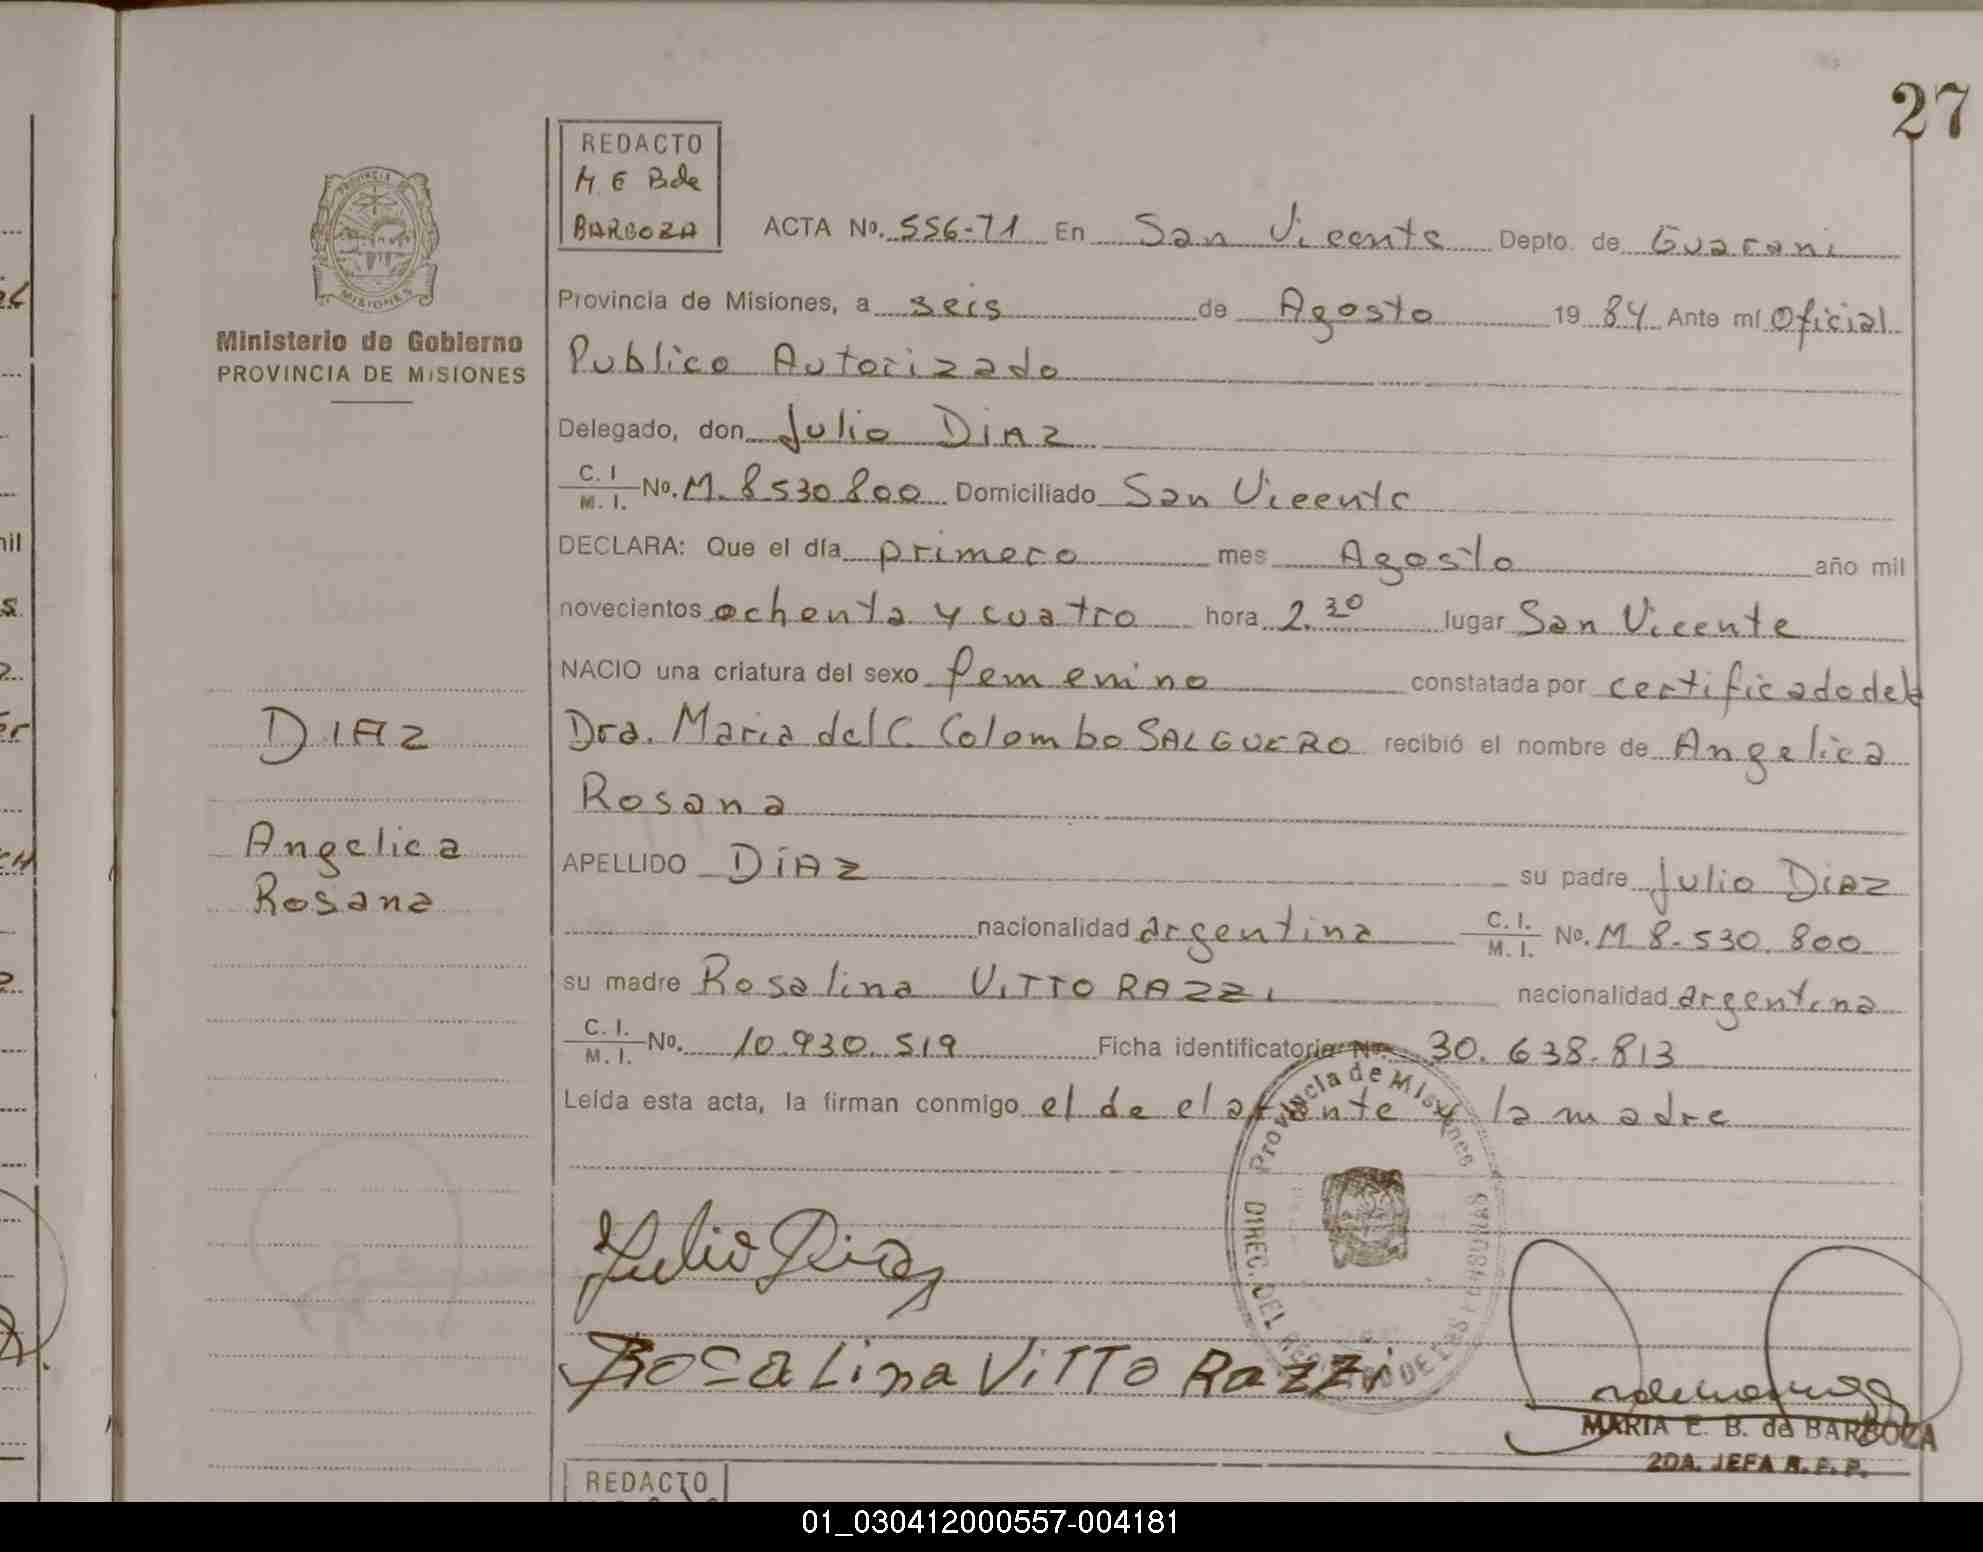 27
REDACTO
M. E B de
BARBOZA
ACTA No. 556-71 En San Vicente Depto. de Guarani
PROVINCIA DE
MISIONES
Ministerio de Gobierno
PROVINCIA DE MISIONES
Provincia de Misiones, a seis de Agosto 19 84 Ante mí Oficial
Publico Autorizado
Delegado, don Julio DIAZ
C. I
M. I. No. M. 8530800 Domiciliado San Vicente
DECLARA: Que el día primero mes Agosto año mil
novecientos ochenta y cuatro hora 2.30 lugar San Vicente
NACIO una criatura del sexo femenino constatada por certificado de la
Dra. Maria del C. Colombo SALGUERO recibió el nombre de Angelica
Rosana
DIAZ
Angelica
Rosana
APELLIDO DIAZ su padre Julio DIAZ
nacionalidad argentina C. I.
M. I. No. M 8.530.800
su madre Rosalina VITTORAZZI nacionalidad argentina
C. I.
M. I. No. 10.930.519 Ficha identificatoria No. 30.638.813
Leída esta acta, la firman conmigo el declarante y la madre
Provincia de Misiones
DIREC. DEL REGISTRO DE LAS PERSONAS
Julio Diaz
Rosalina Vitto Razzi
MARIA E. B. de BARBOZA
2DA. JEFA R. P. P.
REDACTO
01_030412000557-004181